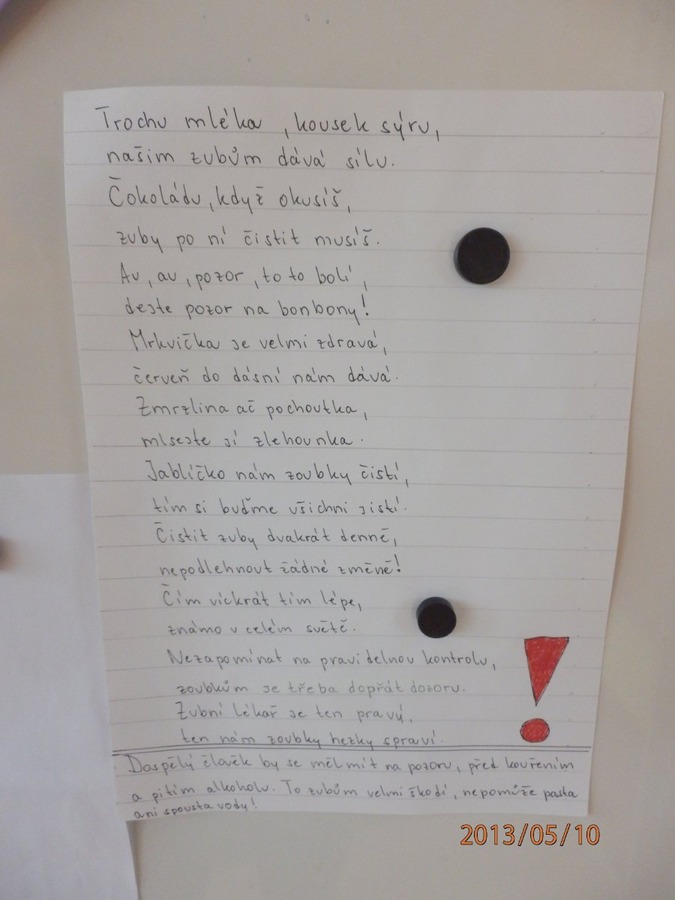 Trochu mléka, kousek sýru,
našim zubům dává sílu.
Čokoládu, když okusíš,
zuby po ní čistit musíš.
Au, au, pozor, to to bolí,
dejte pozor na bonbony!
Mrkvička je velmi zdravá,
červeň do dásní nám dává.
Zmrzlina ač pochoutka,
mlsejte ji zlehounka.
Jablíčko nám zoubky čistí,
tím si buďme všichni jistí.
Čistit zuby dvakrát denně,
nepodlehnout žádné změně!
Čím víckrát tím lépe,
známo v celém světě.
Nezapomínat na pravidelnou kontrolu,
zoubkům je třeba dopřát dozoru.
Zubní lékař je ten pravý,
ten nám zoubky hezky spraví.
Dospělý člověk by se měl mít na pozoru, před kouřením
a pitím alkoholu. To zubům velmi škodí, nepomůže pasta
ani spousta vody!
2013/05/10